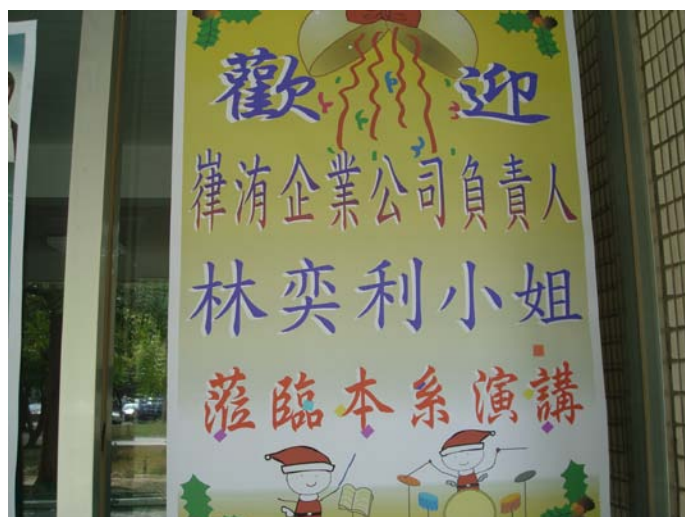 歡迎
嵂洧企業公司負責人
林奕利小姐
蒞臨本系演講